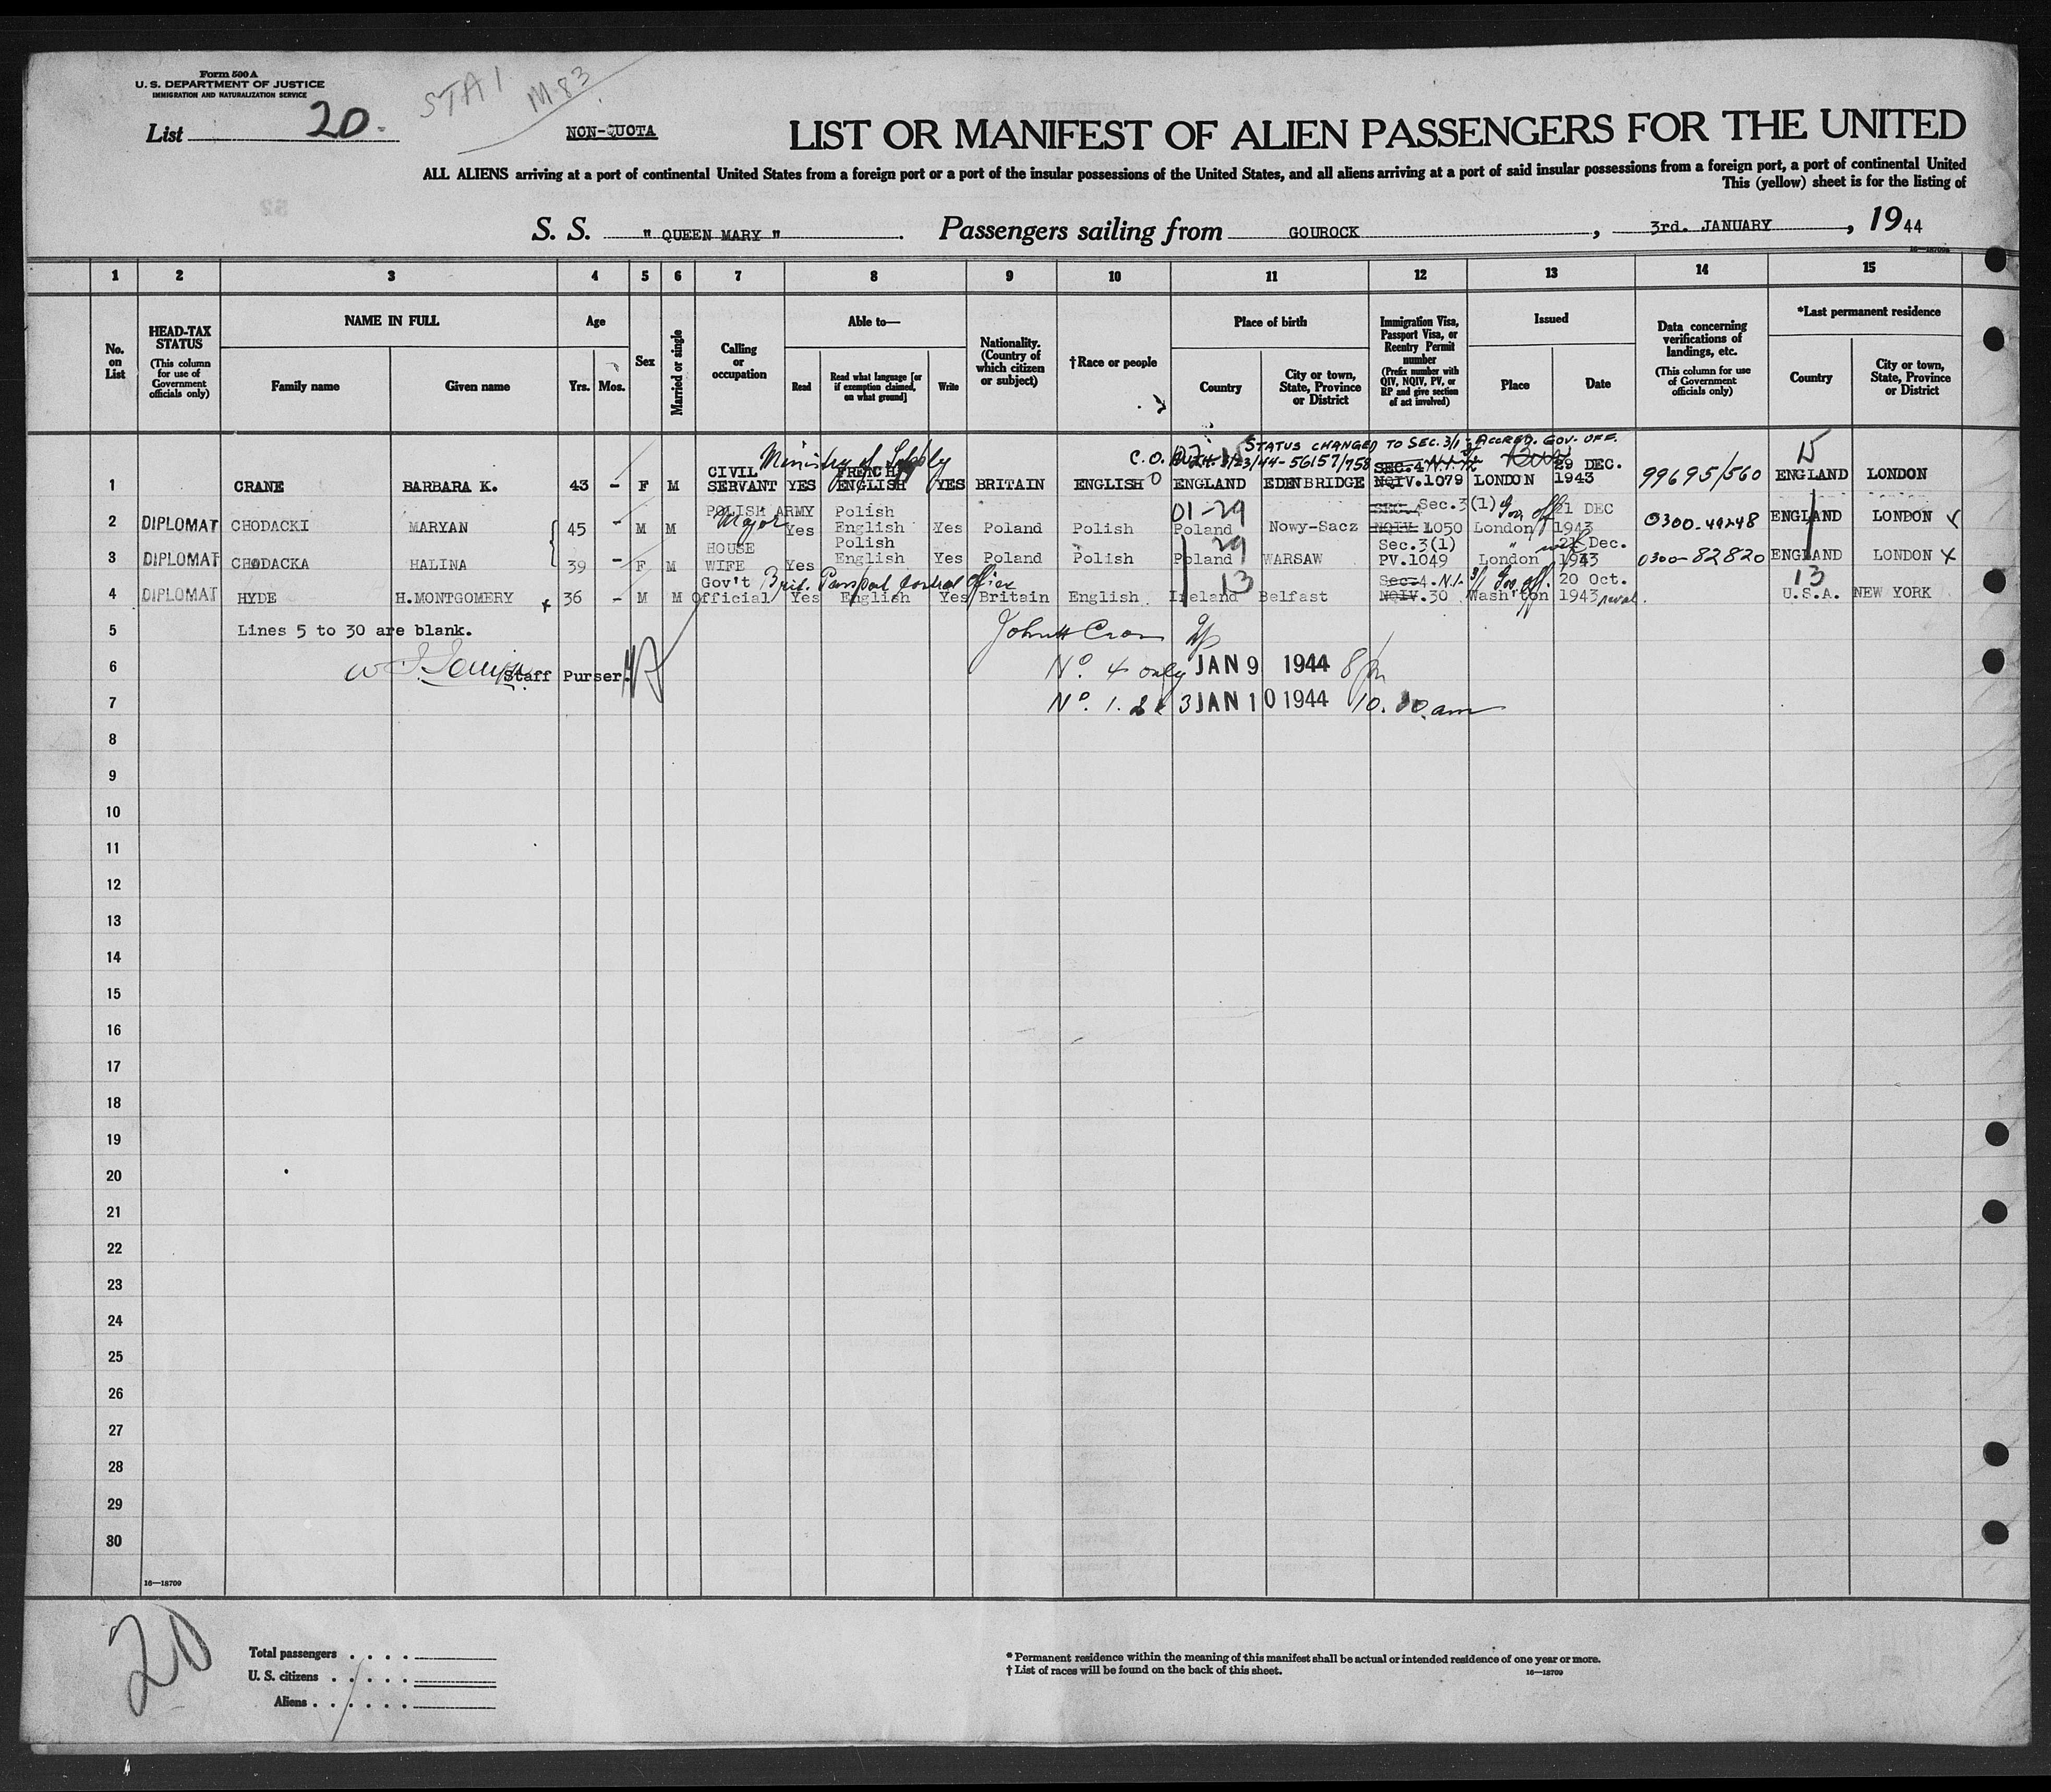 Form 500 A
U. S. DEPARTMENT OF JUSTICE
IMMIGRATION AND NATURALIZATION SERVICE
STA 1
M 83
List 20.
NON-QUOTA
LIST OR MANIFEST OF ALIEN PASSENGERS FOR THE UNITED
ALL ALIENS arriving at a port of continental United States from a foreign port or a port of the insular possessions of the United States, and all aliens arriving at a port of said insular possessions from a foreign port, a port of continental United
This (yellow) sheet is for the listing of
S. S. " QUEEN MARY ". Passengers sailing from GOUROCK, 3rd. JANUARY, 19 44
1 2 3 4 5 6 7 8 9 10 11 12 13 14 15
No. on List
HEAD-TAX STATUS (This column for use of Government officials only)
NAME IN FULL
Family name
Given name
Age
Yrs.
Mos.
Sex
Married or single
Calling or occupation
Able to—
Read
Read what language [or if exemption claimed, on what ground]
Write
Nationality. (Country of which citizen or subject)
†Race or people
Place of birth
Country
City or town, State, Province or District
Immigration Visa, Passport Visa, or Reentry Permit number (Prefix number with QIV, NQIV, PV, or RP and give section of act involved)
Issued
Place
Date
Data concerning verifications of landings, etc. (This column for use of Government officials only)
*Last permanent residence
Country
City or town, State, Province or District
STATUS CHANGED TO SEC. 3/1 - ACCRED. GOV. OFF.
Ministry of Supply
C. O. 3/23/44-56157/758
1 CRANE BARBARA K. 43 - F M CIVIL SERVANT YES FRENCH ENGLISH YES BRITAIN ENGLISH ENGLAND EDENBRIDGE SEC.4 NQIV.1079 LONDON 29 DEC. 1943 99695/560 15 ENGLAND LONDON
2 DIPLOMAT CHODACKI MARYAN 45 - M M POLISH ARMY Major Yes Polish English Yes Poland Polish 01-29 Poland Nowy-Sacz Sec.3(1) NQIV 1050 London 21 DEC 1943 0300-49248 ENGLAND LONDON
3 DIPLOMAT CHODACKA HALINA 39 - F M HOUSE WIFE Yes Polish English Yes Poland Polish 29 Poland WARSAW Sec.3(1) PV.1049 London 21 Dec. 1943 0300-82820 ENGLAND LONDON
4 DIPLOMAT HYDE H.MONTGOMERY 36 - M M Gov't Official Brit. Passport Control Office Yes English Yes Britain English 13 Ireland Belfast Sec.4. NQIV.30 Wash'ton 20 Oct. 1943 13 U.S.A. NEW YORK
5 Lines 5 to 30 are blank.
6 Staff Purser. No. 4 only JAN 9 1944
7 No. 1. 2 & 3 JAN 10 1944
8
9
10
11
12
13
14
15
16
17
18
19
20
21
22
23
24
25
26
27
28
29
30
16—18709
20
Total passengers
U. S. citizens
Aliens
* Permanent residence within the meaning of this manifest shall be actual or intended residence of one year or more.
† List of races will be found on the back of this sheet.
16—18709